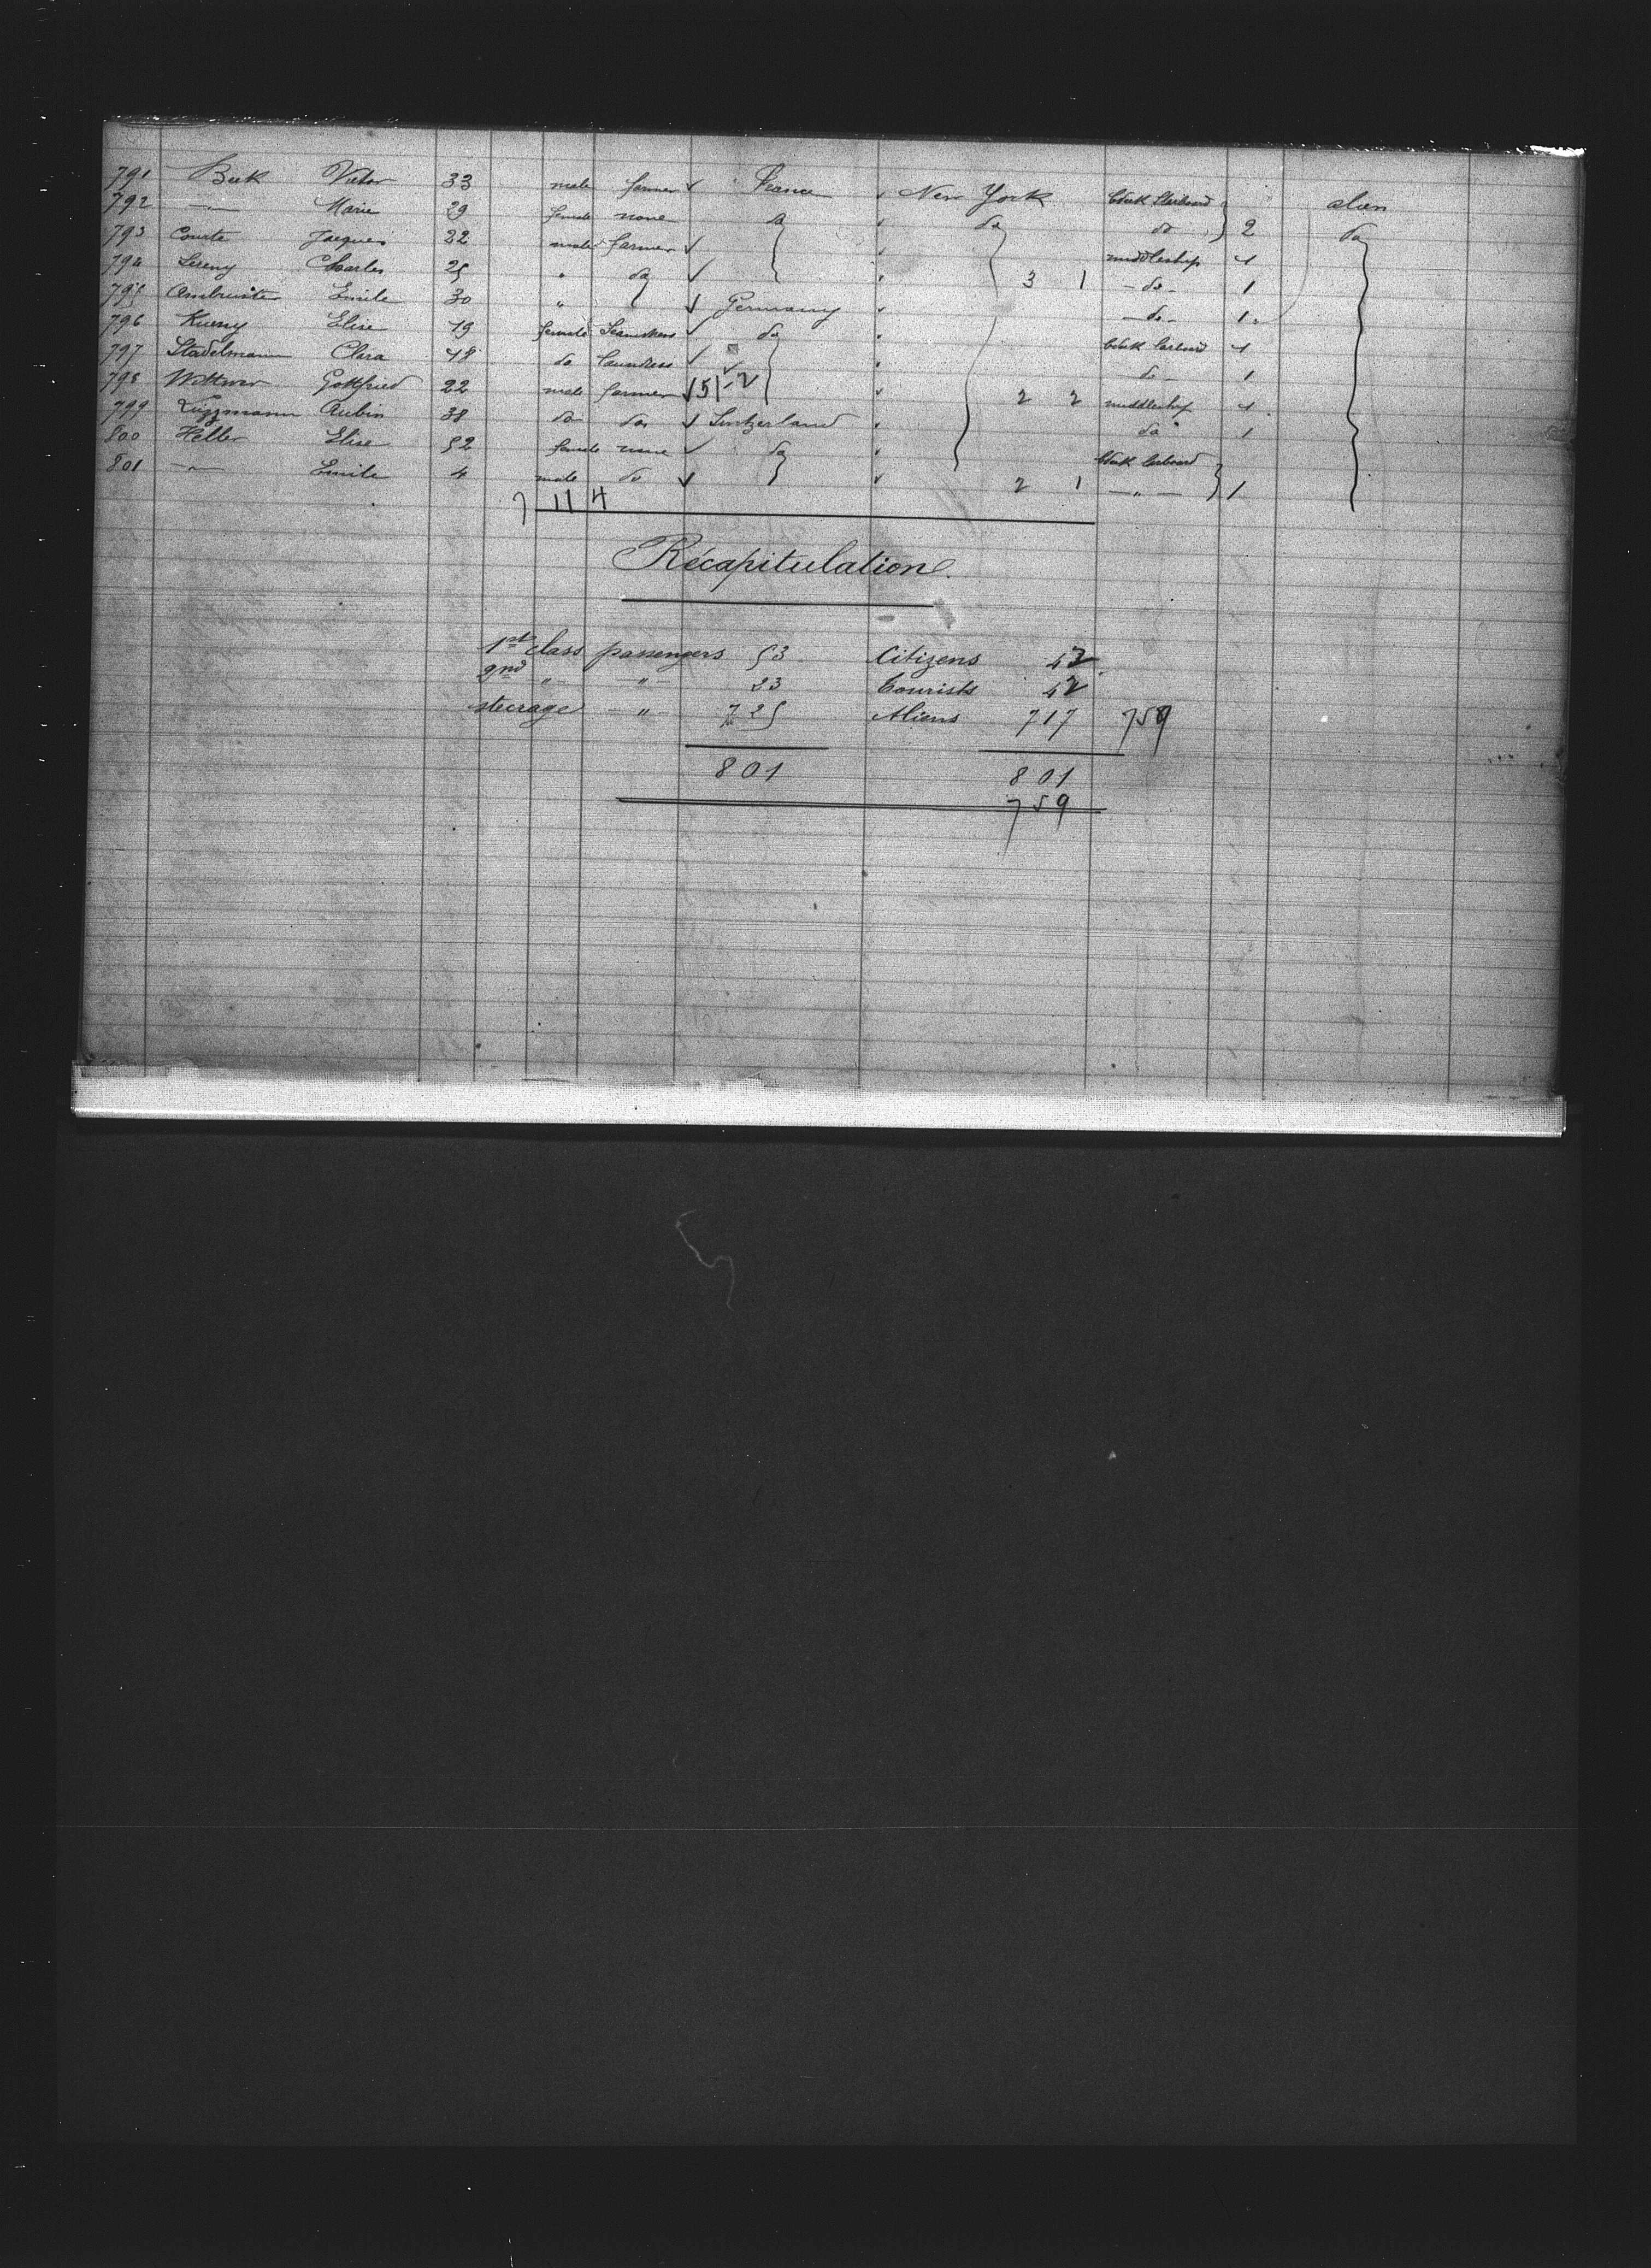 791 Beck Victor 33 male farmer ✓ France New York alien
792 —"— Marie 29 female none do do do 2 do
793 Courte Jacques 22 male farmer ✓ middleship 1
794 Charles 25 " do ✓ 3 1 — do — 1
795 Ambruster Emile 30 " ✓ Germany — do — 1
796 Kueny Elise 19 female ✓ do 1
797 Stadelmann Clara 48 do laundress ✓ do — 1
798 Wittwer Gottfried 22 male farmer ✓ 2 2 middleship 1
799 Aubin 38 do do ✓ Switzerland do 1
800 Heller Elise 52 female none ✓ do
801 —"— Emile 4 male do ✓ 2 1 — " — 1
7 11 4
Récapitulation.
1st class passengers 53 Citizens 42
2nd —"— —"— 23 Tourists 42
steerage —"— 725 Aliens 717 759
801 801
759